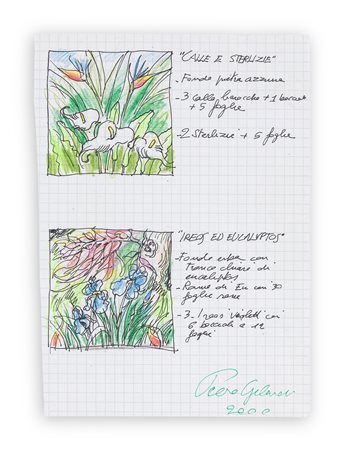 "CALLE E STERLIZIE"
- Fondo pietra azzurra
- 3 Calle bianche + 1 bocciolo
+ 5 foglie
- 2 Sterlizie + 5 foglie
"IREOS ED EUCALYPTOS"
- Fondo erba con
Tronco chiaro di
eucaliptos
- Rame di Eu con 30
foglie rame
- 3 Ireos violetti con
6 boccioli e 12
foglie
Piero Gilardi
2000